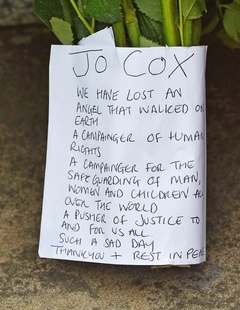 JO COX
WE HAVE LOST AN
ANGEL THAT WALKED ON
EARTH
A CAMPAINGER OF HUMAN
RIGHTS
A CAMPAINGER FOR THE
SAFEGUARDING OF MAN,
WOMEN AND CHILDREN ALL
OVER THE WORLD
A PUSHER OF JUSTICE TO
AND FOR US ALL
SUCH A SAD DAY
THANKYOU + REST IN PEACE